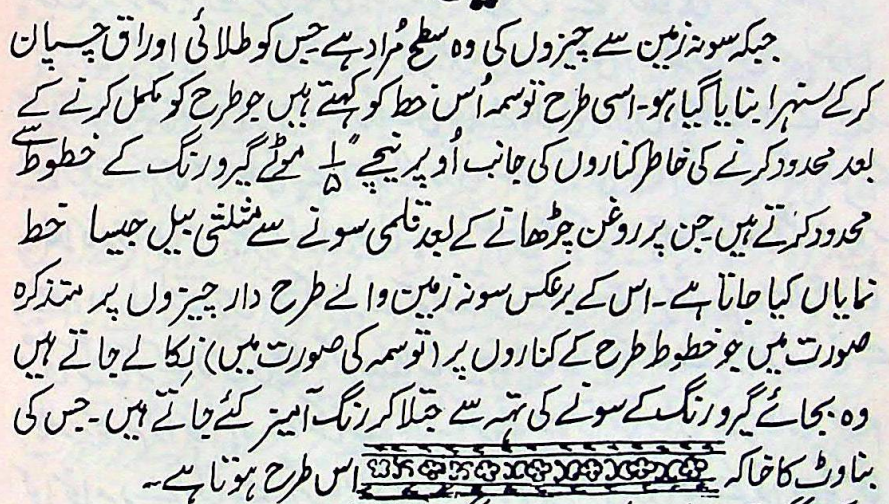 جبکہ سونہ زمین سے چیزوں کی وہ سطح مُراد ہے جس کو طلائی اوراق چسپان
کرکے سنہرا بنایا گیا ہو۔ اسی طرح توسمہ اُس خط کو کہتے ہیں جو طرح کو مکمل کرنے کے
بعد محدود کرنے کی خاطر کناروں کی جانب اُوپر نیچے ″۱/۵ موٹے گیرو رنگ کے خطوط سے
محدود کرتے ہیں جن پر روغن چڑھانے کے بعد قلمی سونے سے مثلثی بیل جیسا خط
نمایاں کیا جاتا ہے۔ اس کے برعکس سونہ زمین والے طرح دار چیزوں پر متذکرہ
صورت میں جو خطوط طرح کے کناروں پر (توسمہ کی صورت میں) نکالے جاتے ہیں
وہ بجائے گیرو رنگ کے سونے کی تہہ سے جتلا کر رنگ آمیز کئے جاتے ہیں۔ جس کی
بناوٹ کا خاکہ اس طرح ہوتا ہے۔